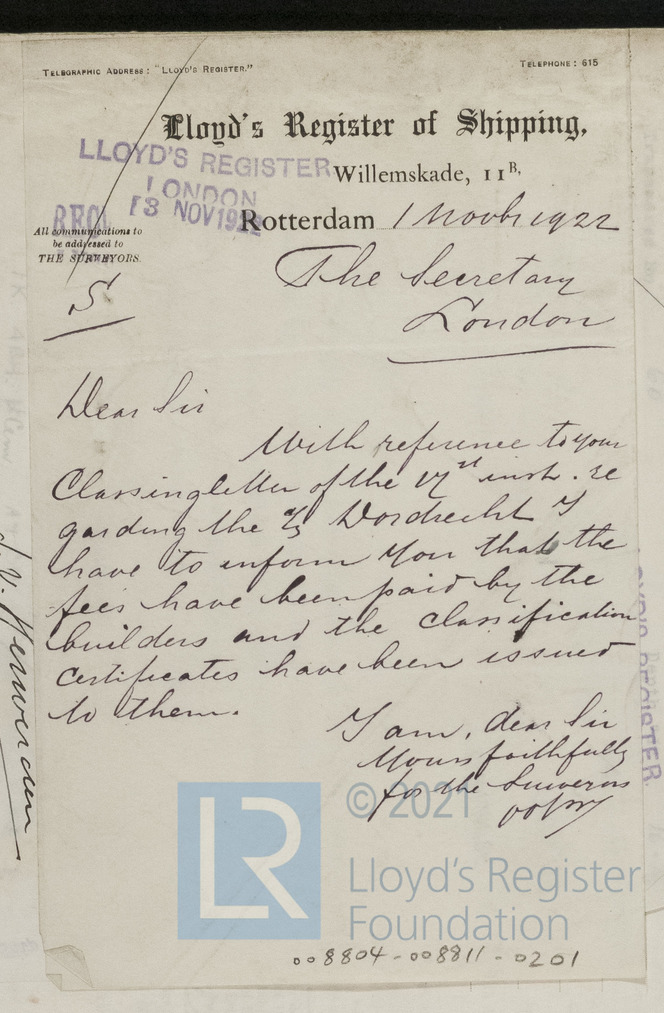 TELEGRAPHIC ADDRESS: "LLOYD'S REGISTER."
TELEPHONE: 615
Lloyd's Register of Shipping,
LLOYD'S REGISTER
LONDON
13 NOV 1922
Willemskade, 11B,
Rotterdam 1 Novbr 1922
All communications to
be addressed to
THE SURVEYORS.
S
The Secretary
London
Dear Sir
With reference to your
Classingletter of the 17st inst. re
garding the Dordrecht I
have to inform you that the
fees have been paid by the
builders and the classification
certificates have been issued
to them.
I am, dear Sir
Yours faithfully
for the Surveyors
LLOYD'S REGISTER
LR
© 2021
Lloyd's Register
Foundation
008804-008811-0201